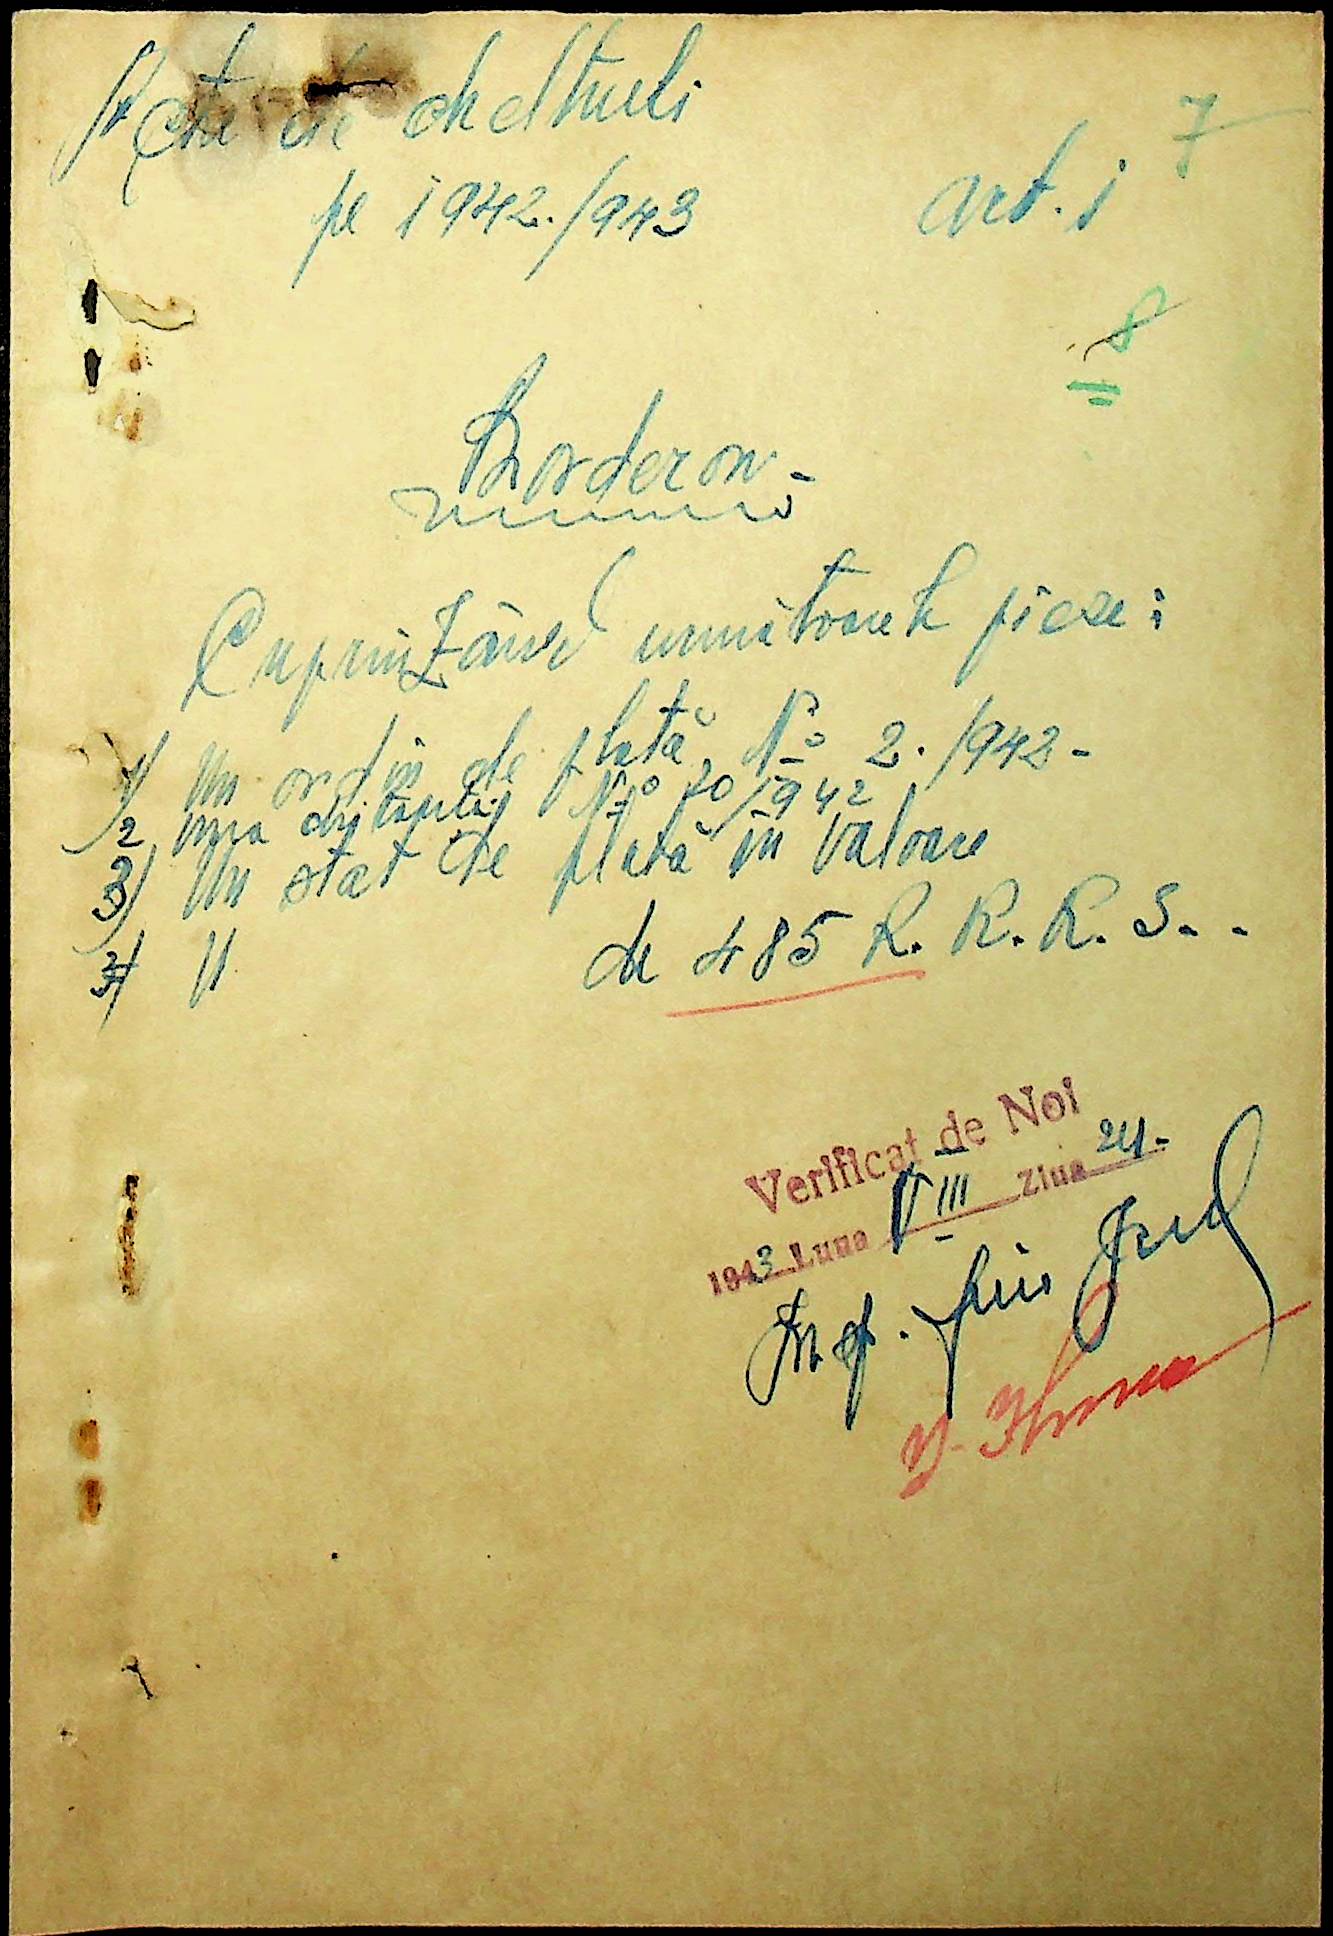 Acte de cheltueli
pe 1942./943
art. 1
7
8
Borderou.
Cuprinzând următoarele piese:
1) Un ordin de plată No 2./942-
2 una No 70/1942
3) Un stat de plată în valoare
de 485 R. R. R. S..
Verificat de Noi
1943 Luna VIII Ziua 24-